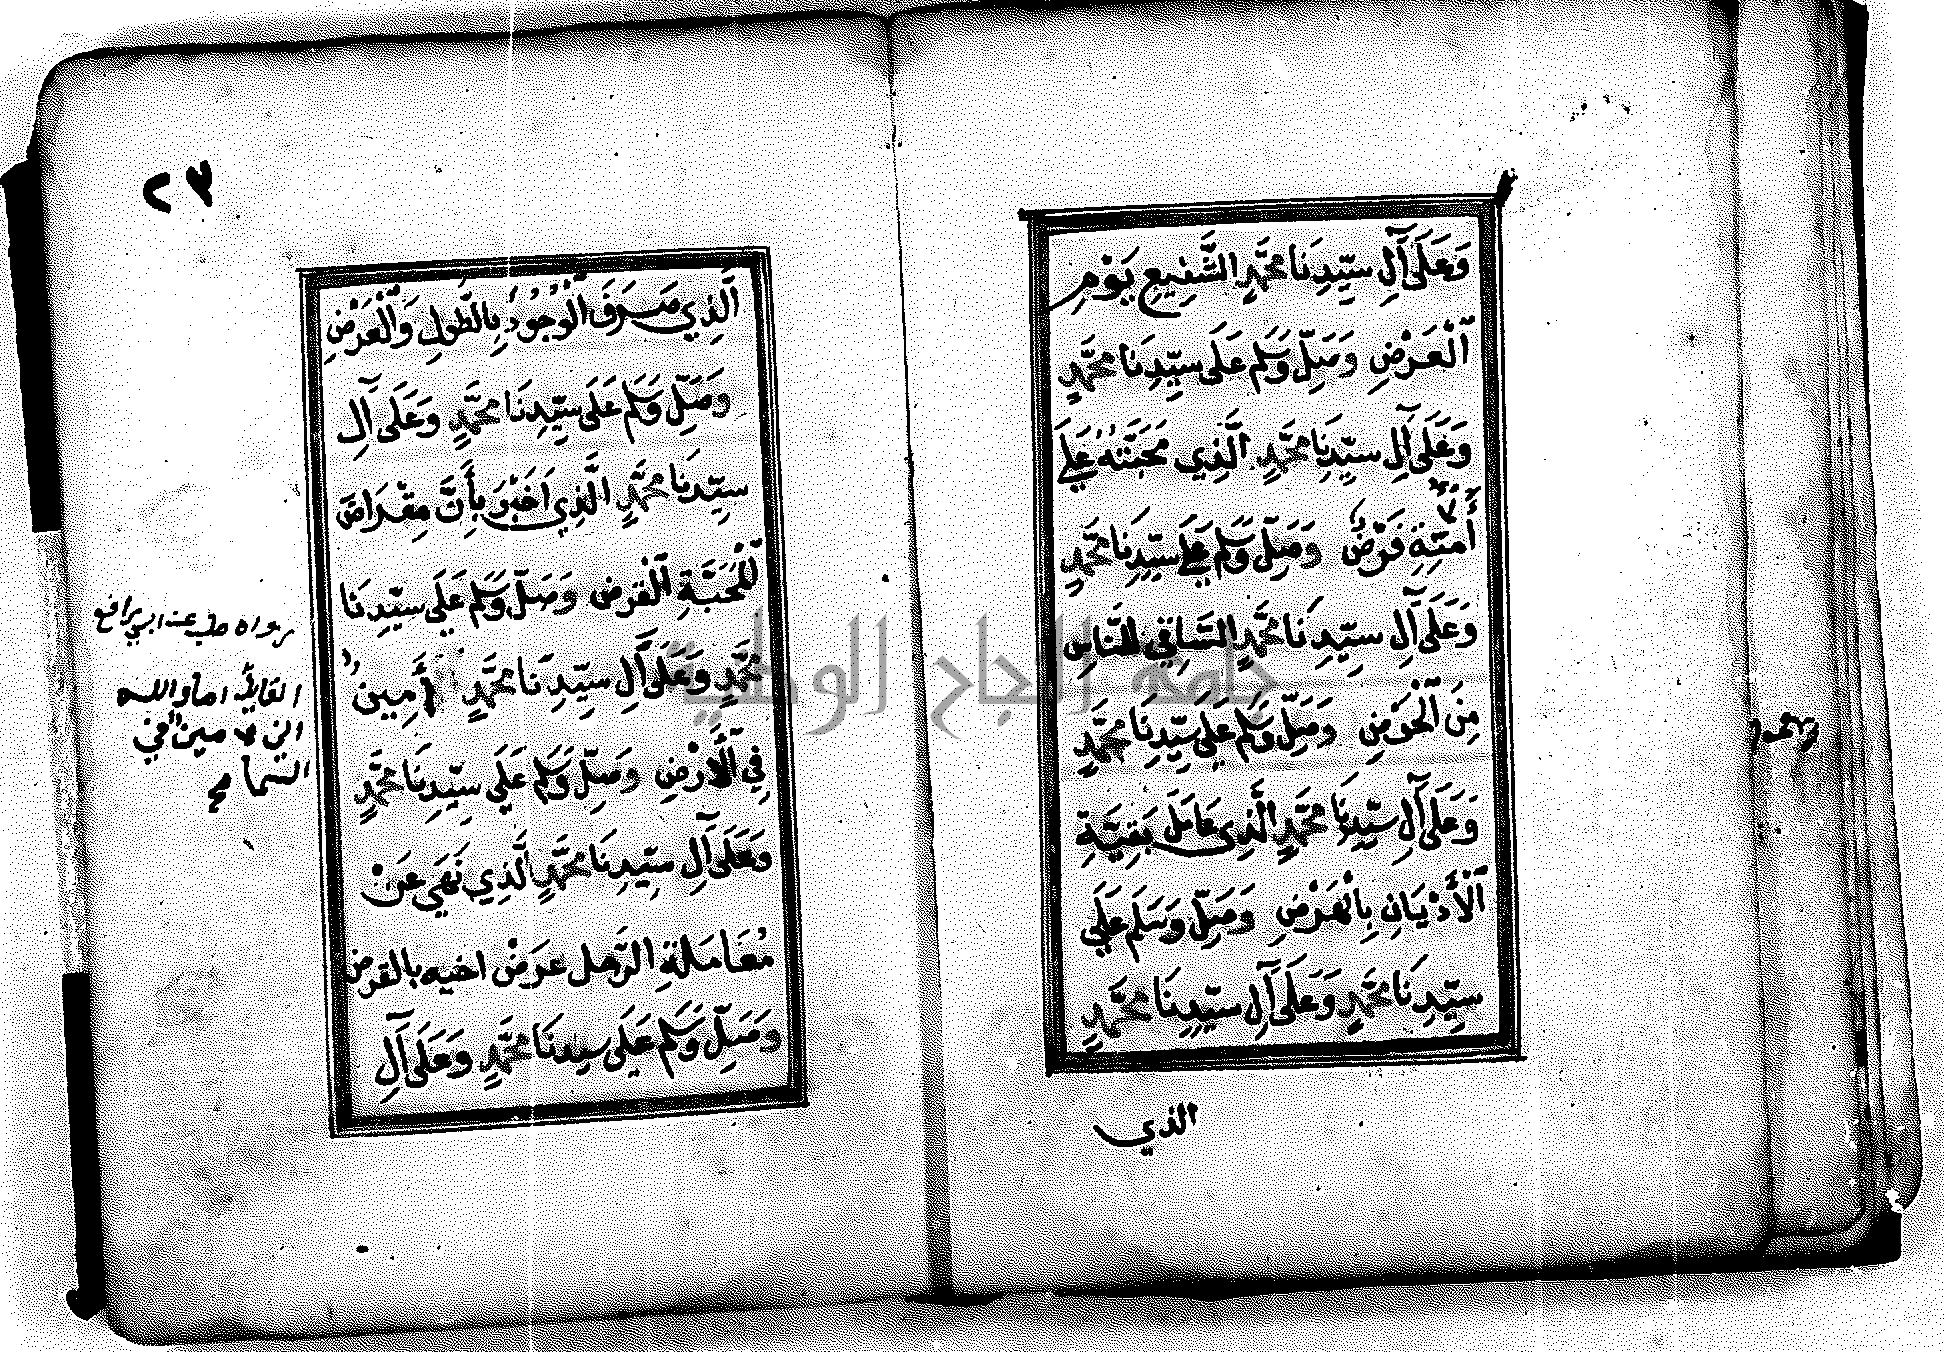 وَعَلَى آلِ سَيِّدِنَا مُحَمَّدٍ الشَّفِيعِ يَوْمَ
اَلْعَرْضِ وَصَلِّ وَسَلِّم عَلَى سَيِّدِنَا مُحَمَّدٍ
وَعَلَى آلِ سَيِّدِنَا مُحَمَّدٍ الَّذِي مَحَبَّتُهُ عَلَى
أُمَّتِهِ فَرْضٌ وَصَلِّ وَسَلِّم عَلَى سَيِّدِنَا مُحَمَّدٍ
وَعَلَى آلِ سَيِّدِنَا مُحَمَّدٍ السَّاقِي لِلنَّاسِ
مِنَ الْحَوْضِ وَصَلِّ وَسَلِّم عَلَى سَيِّدِنَا مُحَمَّدٍ
وَعَلَى آلِ سَيِّدِنَا مُحَمَّدٍ الَّذِي عَامَلَ بَقِيَّةَ
اَلْأَدْيَانِ بِالْهَرْضِ وَصَلِّ وَسَلِّم عَلَى
سَيِّدِنَا مُحَمَّدٍ وَعَلَى آلِ سَيِّدِنَا مُحَمَّدٍ
الذي
٢٣
الَّذِي صَرَفَ الْوُجُودَ بِالطُّولِ وَالْعَرْضِ
وَصَلِّ وَسَلِّم عَلَى سَيِّدِنَا مُحَمَّدٍ وَعَلَى آلِ
سَيِّدِنَا مُحَمَّدٍ الَّذِي اَخْبَرَ بِأَنَّ مِقْرَاضَ
اَلْمَحَبَّةِ اَلْقَرْضُ وَصَلِّ وَسَلِّم عَلَى سَيِّدِنَا
مُحَمَّدٍ وَعَلَى آلِ سَيِّدِنَا مُحَمَّدٍ أَمِينُ
فِي اَلْأَرْضِ وَصَلِّ وَسَلِّم عَلَى سَيِّدِنَا مُحَمَّدٍ
وَعَلَى آلِ سَيِّدِنَا مُحَمَّدٍ الَّذِي نَهَى عَنْ
مُعَامَلَةِ الرَّجُلِ عَرَضَ اخيه بالقرض
وَصَلِّ وَسَلِّم عَلَى سَيِّدِنَا مُحَمَّدٍ وَعَلَى آلِ
رواه طب عن ابي رافع
القائل اما والله
اني لامين في
السما
جامعة النجاح الوطنية